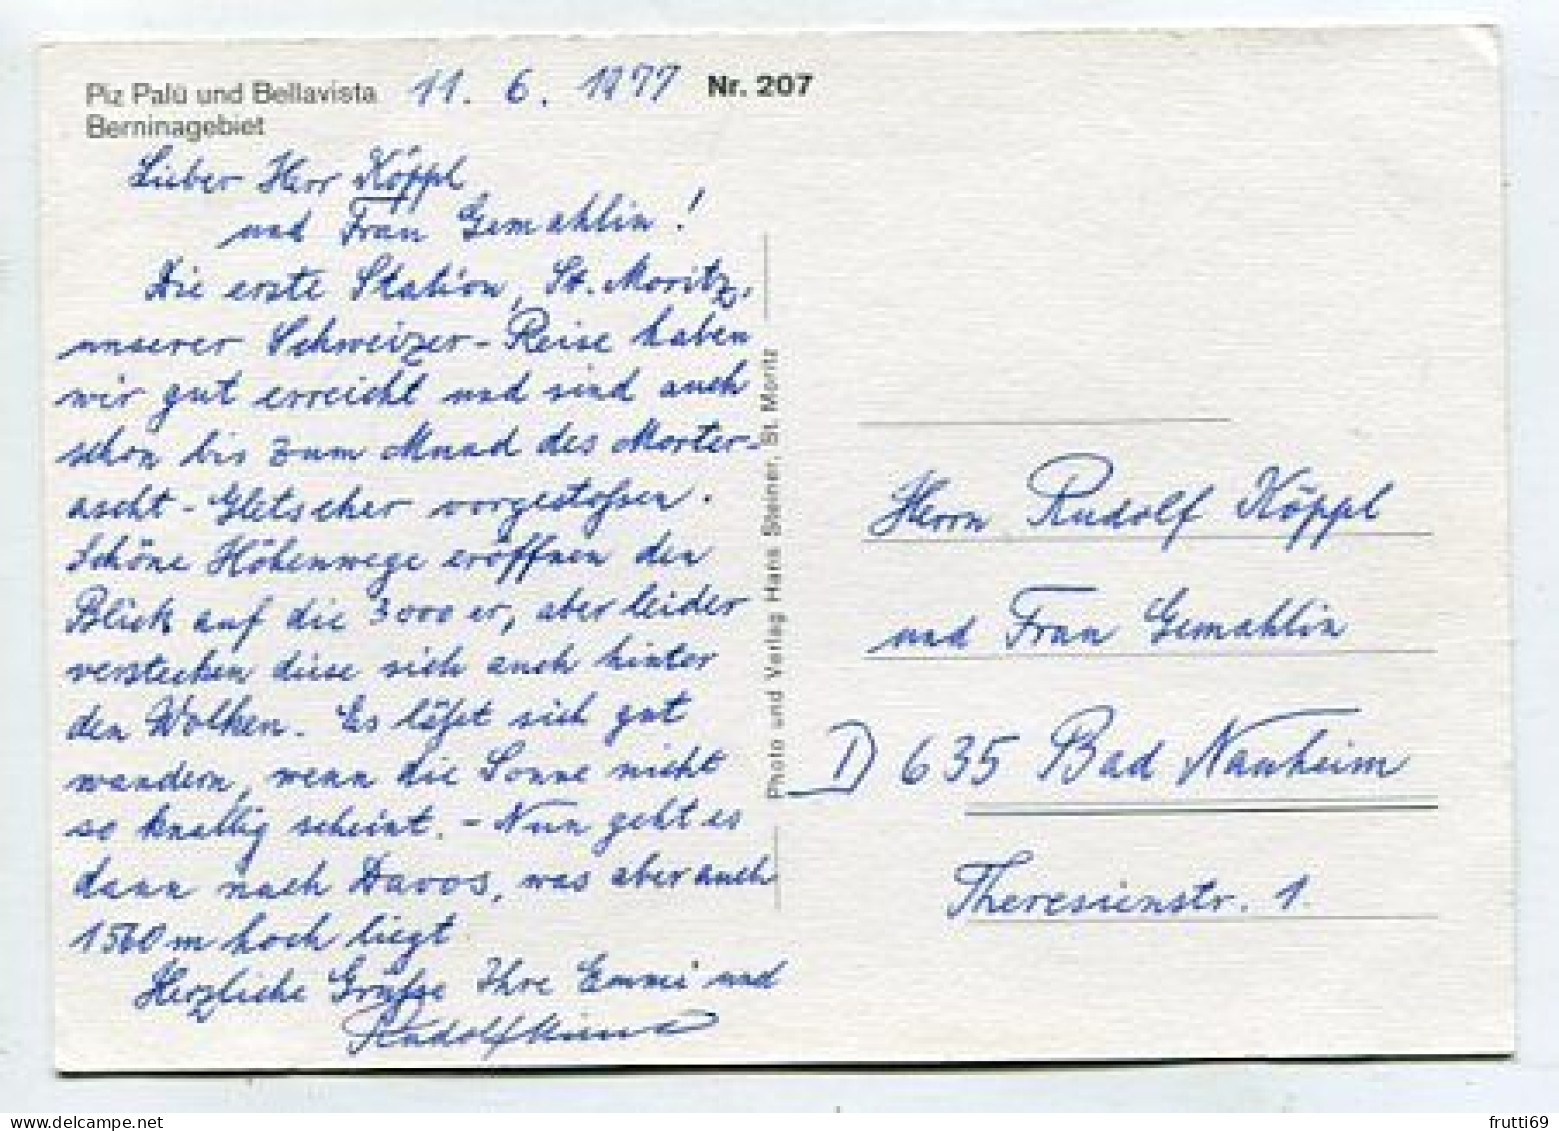 Piz Palü und Bellavista
Berninagebiet
11. 6. 1977
Nr. 207
Lieber Herr Köppl
und Frau Gemahlin!
Die erste Station, St. Moritz,
unserer Schweizer-Reise haben
wir gut erreicht und sind auch
schon bis zum Mund des Morter-
ascht-Gletscher vorgestoßen.
Schöne Höhenwege eröffnen den
Blick auf die 3000er, aber leider
verstecken diese sich auch hinter
den Wolken. Es läßt sich gut
wandern, wenn die Sonne nicht
so knallig scheint. - Nun geht es
dann nach Davos, was aber auch
1560 m hoch liegt
Herzliche Grüße Ihre Emmi und
Rudolf
Photo und Verlag Hans Steiner, St. Moritz
Herrn Rudolf Köppl
und Frau Gemahlin
D 635 Bad Nauheim
Theresienstr. 1.
frutti69